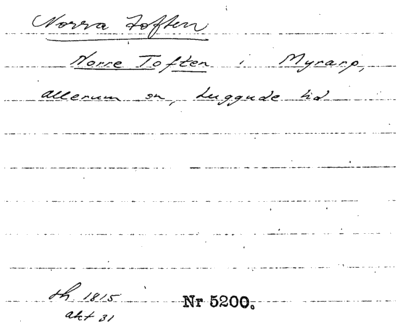 Norra Toften
Norre Toften i Myrarp,
Allerum sn, Luggude hd
sh 1815
akt 31
Nr 5200.